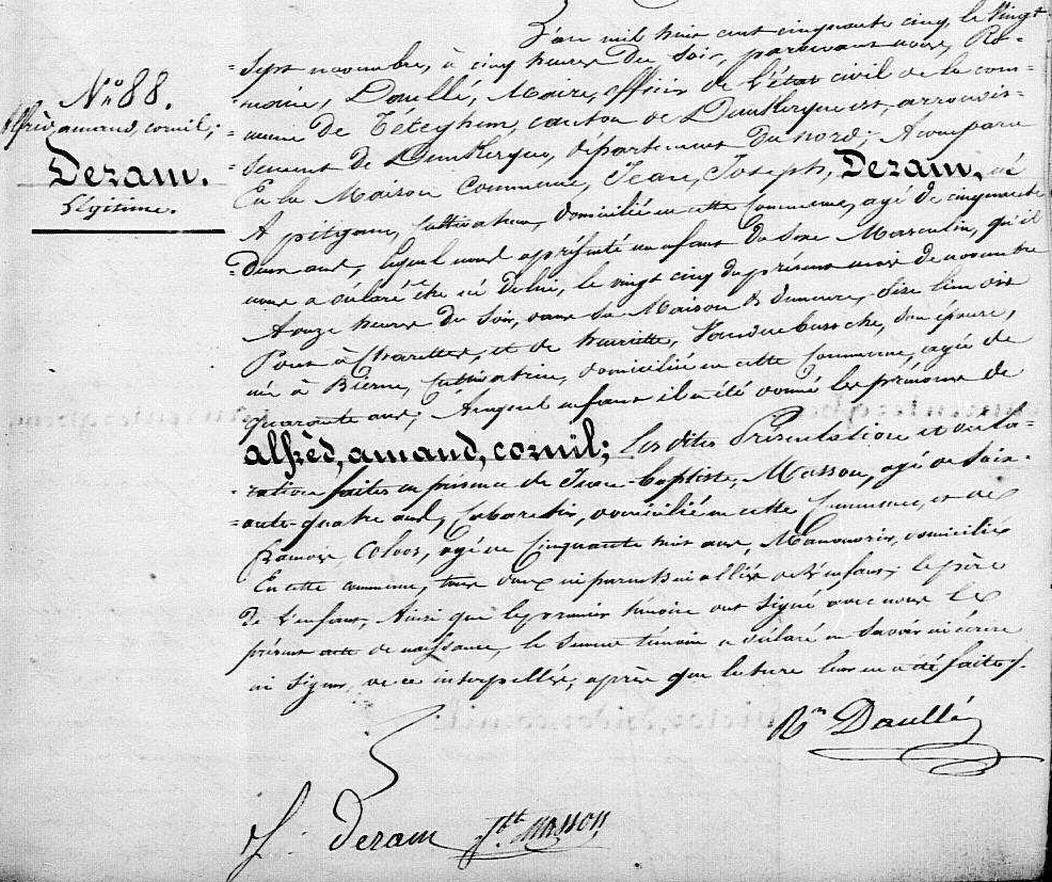 N° 88.
Alfrèd, amand, cornil;
Dezam.
Légitime.
L'an mil huit cent cinquante cinq, le Vingt
Sept novembre, à cinq heures du Soir, pardevant nous, Ro-
Daullé, Maire, officier de l'état civil de la com-
mune de Téteghem, canton de Dunkerque est, arrondis-
sement de Dunkerque, département du nord; A comparu
En la Maison Commune, Jean, Joseph, Dezam, né
A pitgam, Cultivateur, domicilié en cette Commune, agé de cinquante
Deux ans, lequel nous a présenté un enfant du Sexe Masculin, qu'il
nous a déclaré être né de lui, le vingt cinq du présent mois de novembre
A onze heures du Soir, dans Sa Maison de demeure, Size lieu dit
Pont à Charettes, et de henriette, Vandenbussche, Son épouse,
née à Bierne, Cultivatrice, domiciliée en cette Commune, agée de
quarante ans; Auquel enfant il a été donné les prénoms de
alfrèd, amand, cornil; Les dites Présentation et décla-
ration faites en présence de Jean-baptiste, Masson, agé de Soix-
ante-quatre ans, Cabaretier, domicilié en cette Commune, et de
françois Coloos, agé de Cinquante huit ans, Manouvrier, domicilié
En cette commune, tous deux ni parents ni alliés de l'enfant; le père
De l'enfant, Ainsi que le premier témoin ont Signé avec nous le
présent acte de naissance, le Second témoin a déclaré ne Savoir ni écrire
ni Signer, de ce interpellé, après que lecture leur en a été faite.
Rn Daullé
J. Dezam Jbtt masson